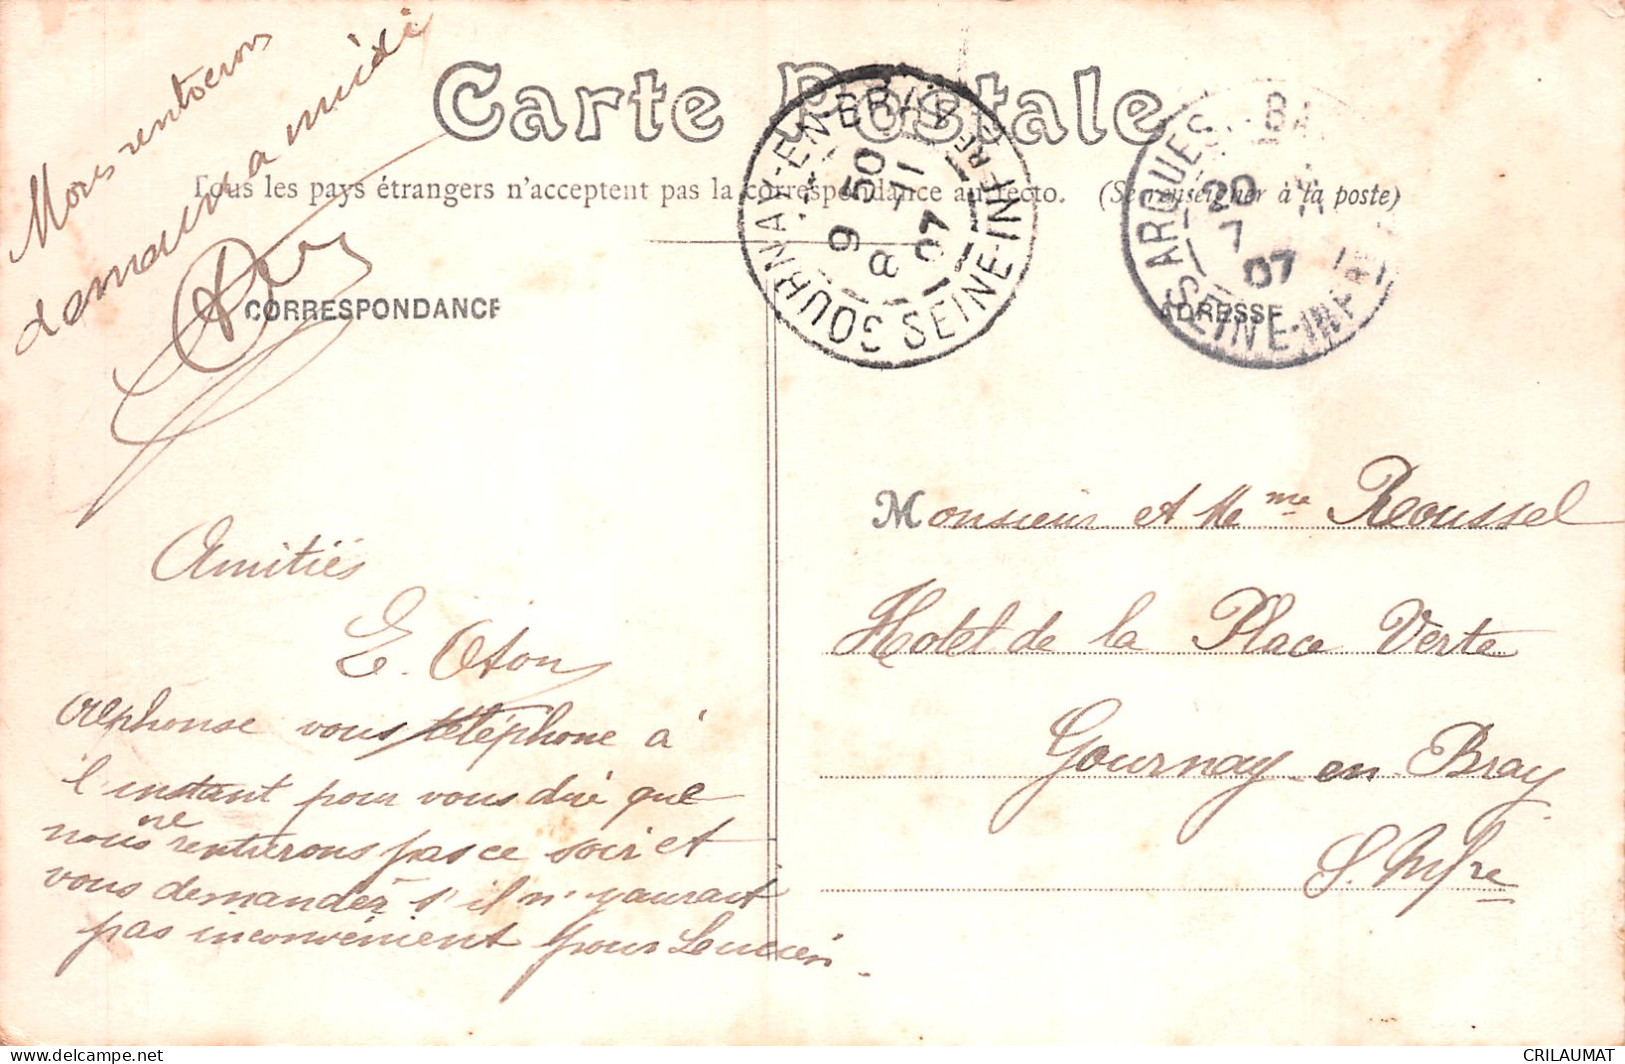 Nous rentrerons
demain à midi
Carte Postale
Tous les pays étrangers n'acceptent pas la correspondance au recto. (Se renseigner à la poste)
CORRESPONDANCE
ADRESSE
GOURNAY-EN-BRAY
SEINE-INFRE
9 50
8 -11
07
ARQUES-BA
SEINE-INFRE
20
7
07
Amitiés
E. Oton
Alphonse vous téléphone à
l'instant pour vous dire que
nous ne rentrerons pas ce soir et
vous demander s'il n'y aurait
pas inconvénient pour Lucien.
Monsieur et Mme Roussel
Hotel de la Place Verte
Gournay en Bray
S. Infre
CRILAUMAT